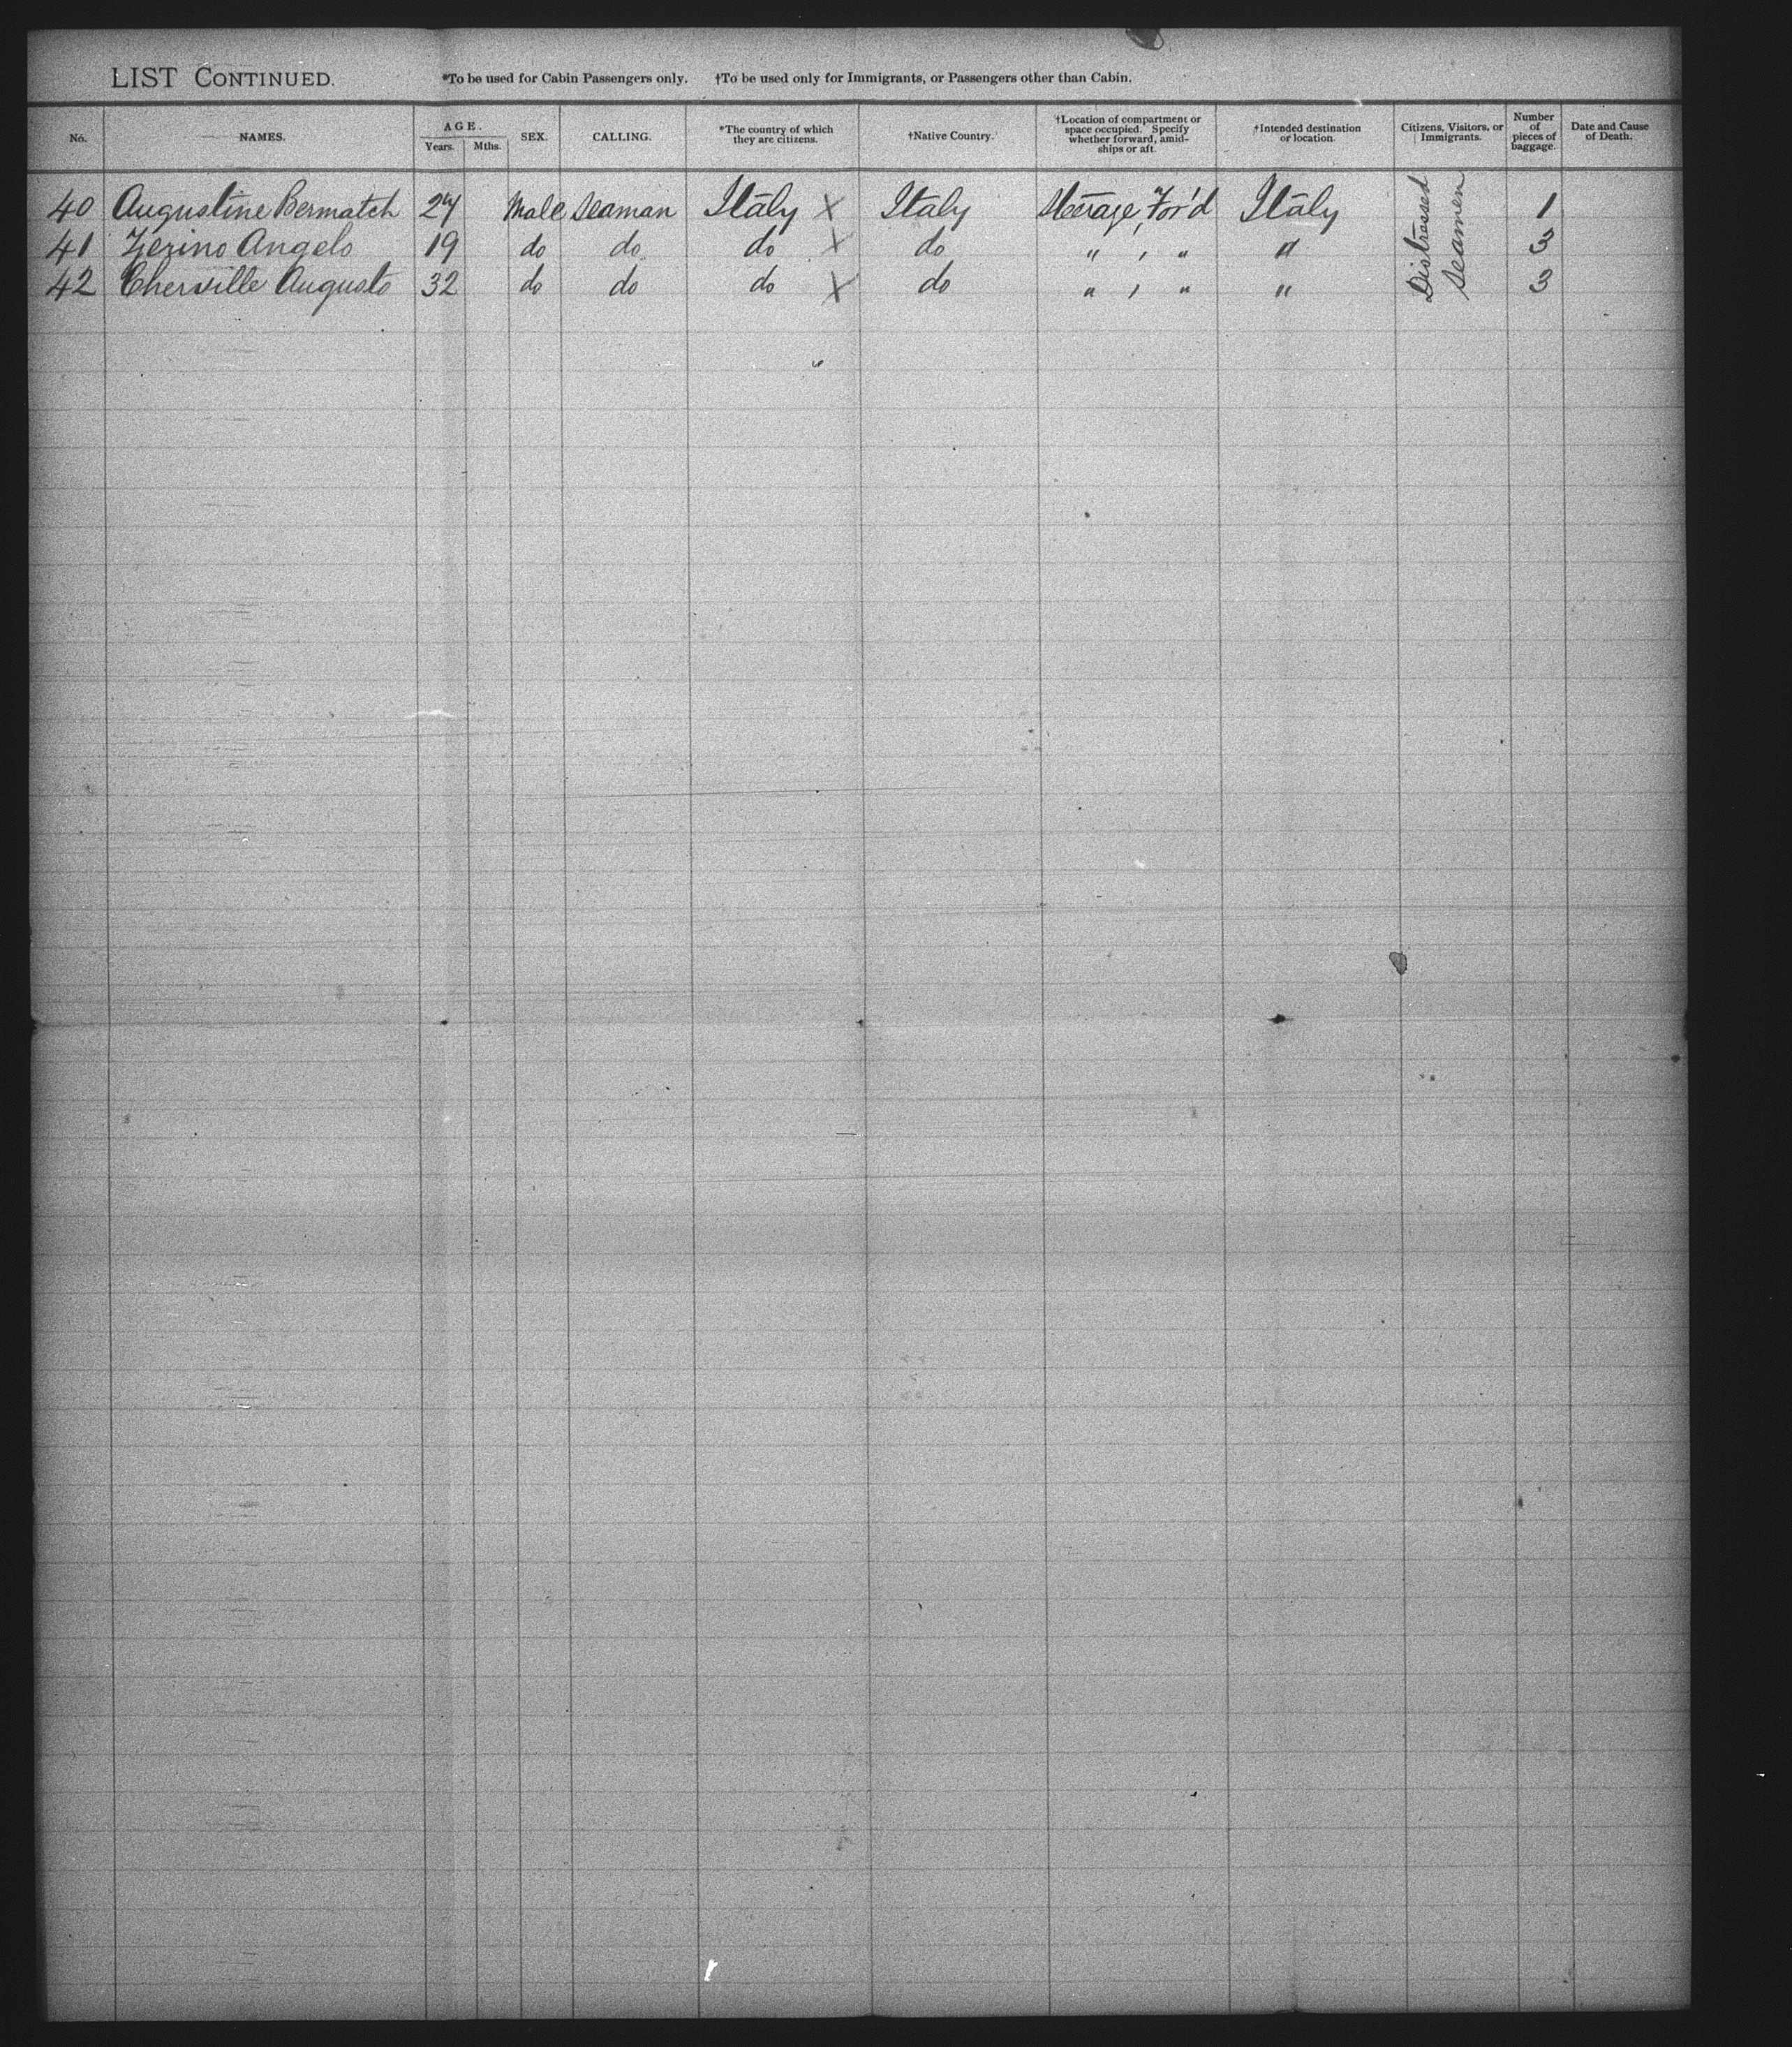 LIST CONTINUED. *To be used for Cabin Passengers only. †To be used only for Immigrants, or Passengers other than Cabin.
No. NAMES. AGE. Years. Mths. SEX. CALLING. *The country of which they are citizens. †Native Country. †Location of compartment or space occupied. Specify whether forward, amidships or aft. †Intended destination or location. Citizens, Visitors, or Immigrants. Number of pieces of baggage. Date and Cause of Death.
40 Augustine Bermatch 24 Male Seaman Italy X Italy Steerage, For'd Italy Distressed Seamen 1
41 Zerino Angelo 19 do do do X do " , " " 3
42 Cherville Augusto 32 do do do X do " , " " 3